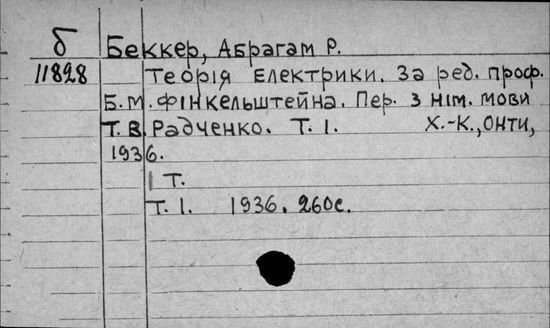 б Беккер, Абрагам Р.
11828 Теорія електрики. За ред. проф.
Б.М. Фінкельштейна. Пер. з нім. мови
Т.В. Радченко. Т. 1. Х.-К., ОНТИ,
1936.
1 Т.
Т. 1. 1936. 260с.